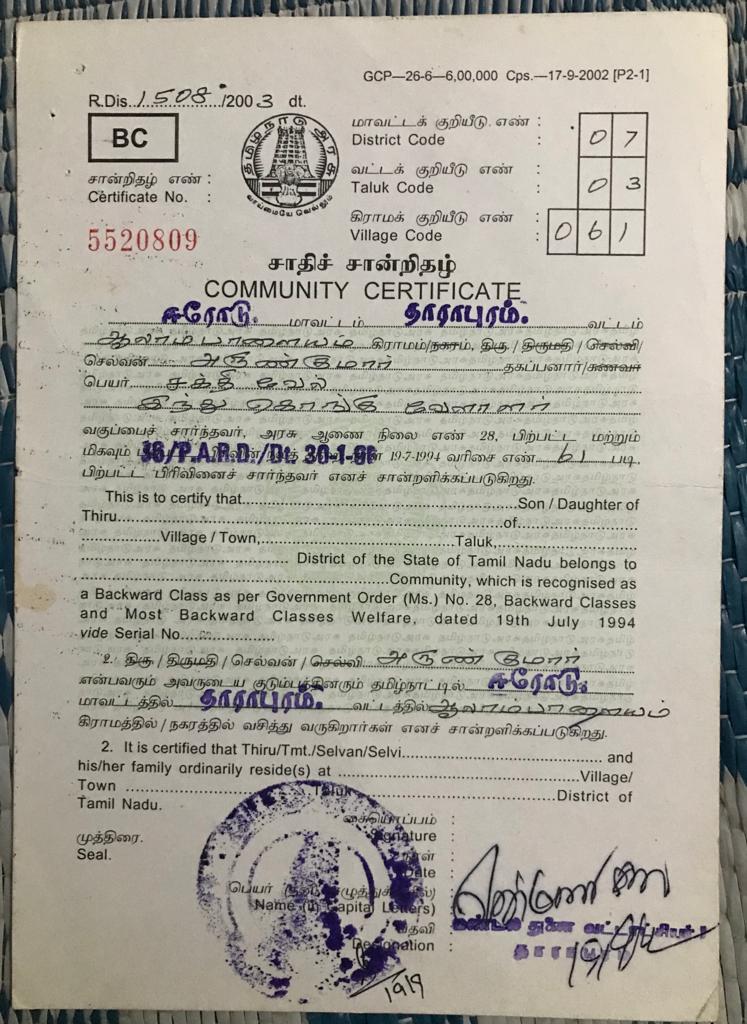 GCP—26-6—6,00,000 Cps.—17-9-2002 [P2-1]
R.Dis. 1508 /2003 dt.
BC
தமிழ்நாடு அரசு
வாய்மையே வெல்லும்
மாவட்டக் குறியீடு எண் :
District Code 07
வட்டக் குறியீடு எண் :
Taluk Code 03
கிராமக் குறியீடு எண் :
Village Code : 061
சான்றிதழ் எண் :
Certificate No. :
5520809
சாதிச் சான்றிதழ்
COMMUNITY CERTIFICATE
ஈரோடு. மாவட்டம் தாராபுரம். வட்டம்
ஆலாம்பாளையம் கிராமம்/நகரம், திரு / திருமதி / செல்வி/
செல்வன் அருண்குமார் தகப்பனார்/கணவர்
பெயர் சக்தி வேல்
இந்து கொங்கு வேளாளர்
வகுப்பைச் சார்ந்தவர், அரசு ஆணை நிலை எண் 28, பிற்பட்ட மற்றும்
மிகவும் 36/P.A.R.D./Dt. 30-1- 19-7-1994 வரிசை எண் 61 படி,
பிற்பட்ட பிரிவினைச் சார்ந்தவர் எனச் சான்றளிக்கப்படுகிறது.
This is to certify that Son / Daughter of
Thiru of
Village / Town, Taluk,
District of the State of Tamil Nadu belongs to
Community, which is recognised as
a Backward Class as per Government Order (Ms.) No. 28, Backward Classes
and Most Backward Classes Welfare, dated 19th July 1994
vide Serial No.
2. திரு / திருமதி / செல்வன் / செல்வி அருண்குமார்
என்பவரும் அவருடைய குடும்பத்தினரும் தமிழ்நாட்டில் ஈரோடு.
மாவட்டத்தில் தாராபுரம். வட்டத்தில் ஆலாம்பாளையம்
கிராமத்தில் / நகரத்தில் வசித்து வருகிறார்கள் எனச் சான்றளிக்கப்படுகிறது.
2. It is certified that Thiru/Tmt./Selvan/Selvi and
his/her family ordinarily reside(s) at Village/
Town Taluk District of
Tamil Nadu.
முத்திரை.
Seal.
கையொப்பம் :
Signature :
நாள் :
Date :
பெயர்
Name (in Capital Letters) :
பதவி
Designation :
மண்டல துணை
தாராபுரம்